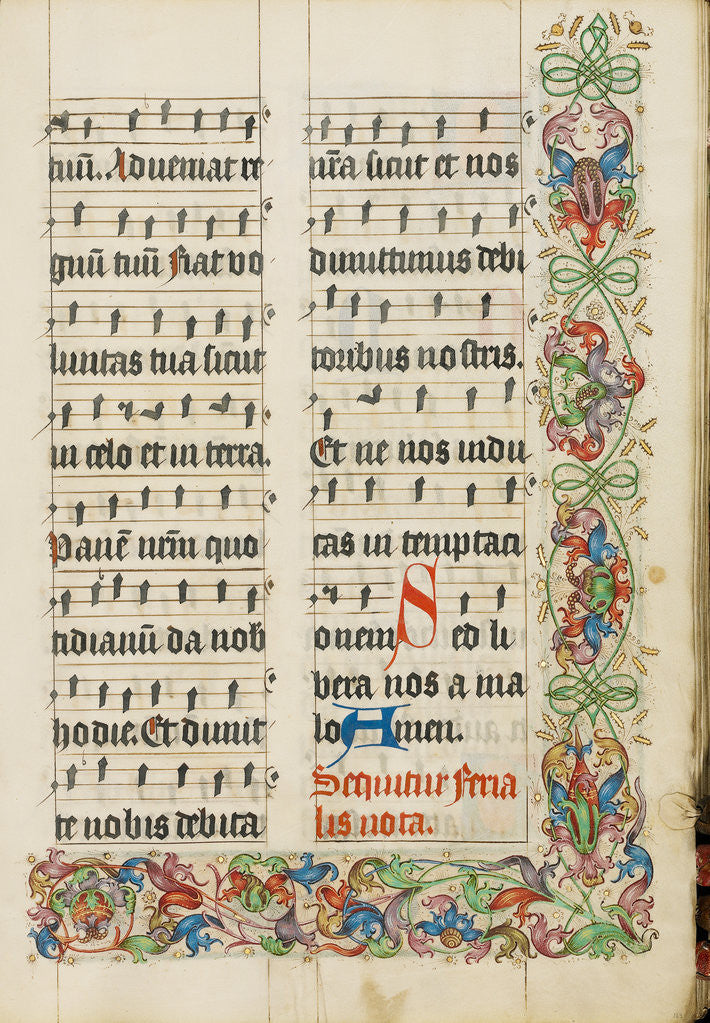 tuū. Adveniat re
gnū tuū fiat vo
luntas tua sicut
in celo et in terra.
Panē nr̄m quo
tidianū da nob
hodie. Et dimit
te nobis debita
nr̄a sicut et nos
dimittimus debi
toribus nostris.
Et ne nos indu
cas in temptaci
onem Sed li
bera nos a ma
lo Amen.
Sequitur feria
lis nota.